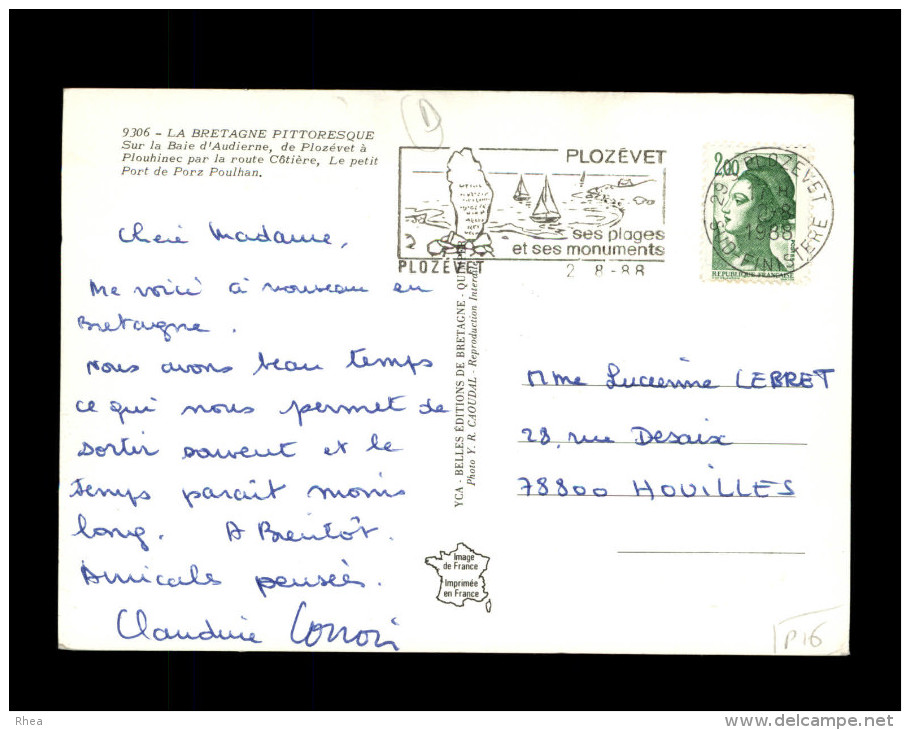 9306 - LA BRETAGNE PITTORESQUE
Sur la Baie d'Audierne, de Plozévet à
Plouhinec par la route Côtière, Le petit
Port de Porz Poulhan.
PLOZÉVET
ses plages
et ses monuments
PLOZÉVET
2 8-88
29 PLOZEVET
1988
SUD FINISTÈRE
2,00
REPUBLIQUE FRANÇAISE
Chère Madame,
Me voici à nouveau en
Bretagne.
Nous avons beau temps
ce qui nous permet de
sortir souvent et le
temps paraît moins
long. A Bientôt.
Amicales pensées.
Claudine
YCA - BELLES ÉDITIONS DE BRETAGNE - QUIMPER
Photo Y. R. CAOUDAL - Reproduction Interdite
Image
de France
Imprimée
en France
Mme Lucienne LEBRET
28, rue Desaix
78800 HOUILLES
P16
Rhea
www.delcampe.net